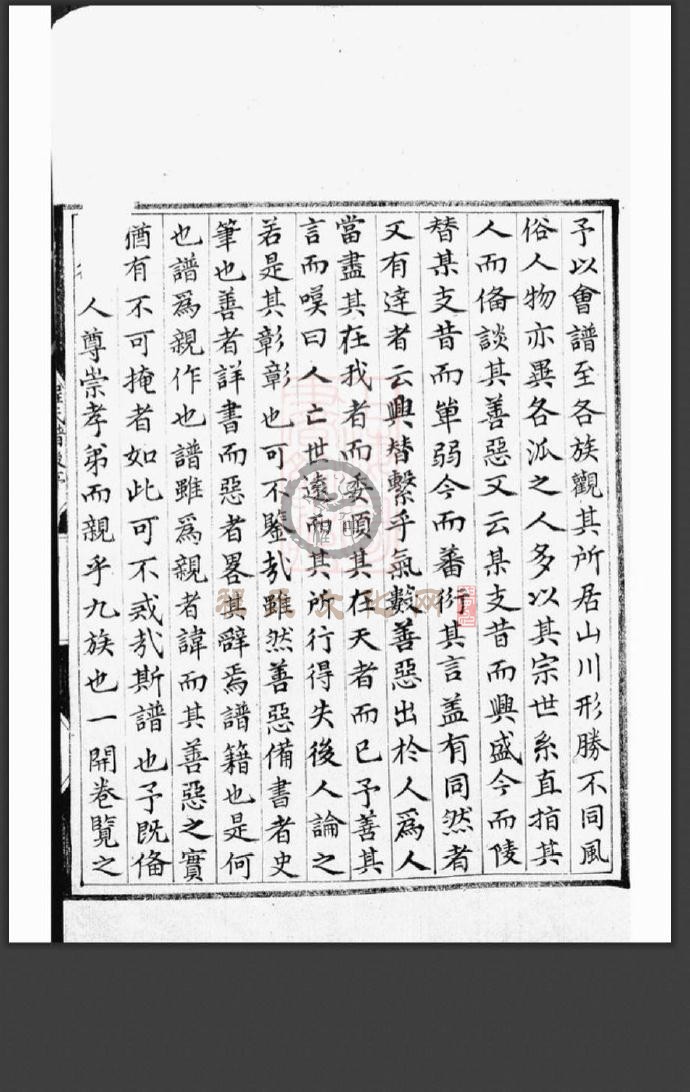 予以會譜至各族觀其所居山川形勝不同風
俗人物亦異各派之人多以其宗世系直指其
人而俻談其善惡又云某支昔而興盛今而陵
替某支昔而單弱今而蕃衍其言盖有同然者
又有達者云興替繫乎氣數善惡出於人爲人
當盡其在我者而委順其在天者而已予善其
言而嘆曰人亡世遠而其所行得失後人論之
若是其彰彰也可不鑒㢤雖然善惡備書者史
筆也善者詳書而惡者畧其辭焉譜籍也是何
也譜爲親作也譜雖爲親者諱而其善惡之實
猶有不可掩者如此可不戒㢤斯譜也予既俻
人尊崇孝弟而親乎九族也一開卷覽之
程氏文化网